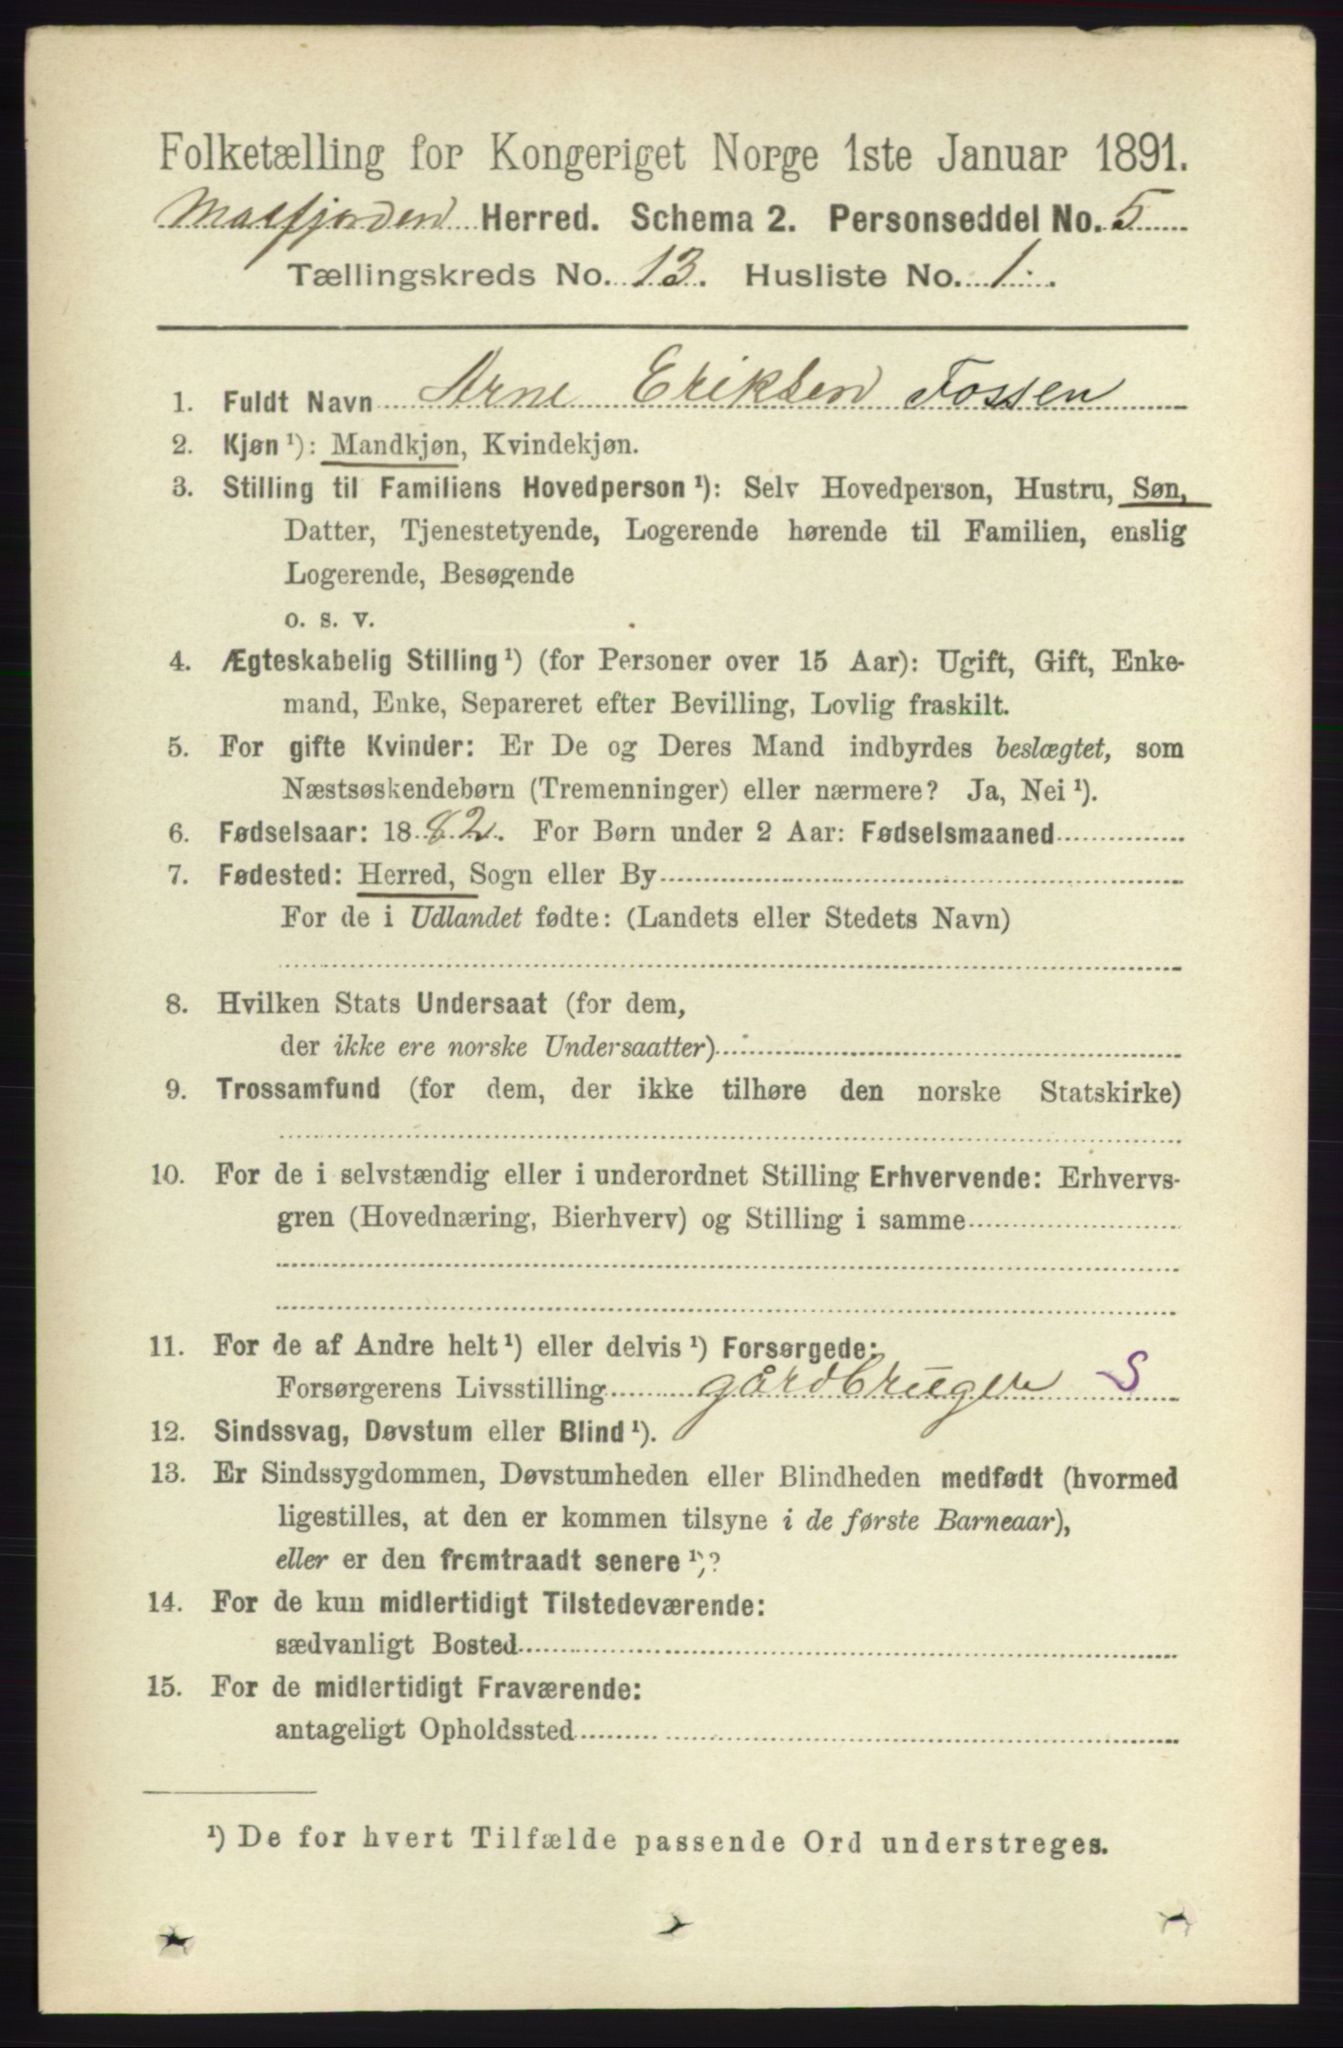 Folketælling for Kongeriget Norge 1ste Januar 1891.
Malfjorden Herred. Schema 2. Personseddel No. 5
Tællingskreds No. 13. Husliste No. 1.
1. Fuldt Navn Arne Eriksen Fossen
2. Kjøn ¹): Mandkjøn, Kvindekjøn.
3. Stilling til Familiens Hovedperson ¹): Selv Hovedperson, Hustru, Søn,
Datter, Tjenestetyende, Logerende hørende til Familien, enslig
Logerende, Besøgende
o. s. v.
4. Ægteskabelig Stilling ¹) (for Personer over 15 Aar): Ugift, Gift, Enke-
mand, Enke, Separeret efter Bevilling, Lovlig fraskilt.
5. For gifte Kvinder: Er De og Deres Mand indbyrdes beslægtet, som
Næstsøskendebørn (Tremenninger) eller nærmere? Ja, Nei ¹).
6. Fødselsaar: 1882. For Børn under 2 Aar: Fødselsmaaned
7. Fødested: Herred, Sogn eller By
For de i Udlandet fødte: (Landets eller Stedets Navn)
8. Hvilken Stats Undersaat (for dem,
der ikke ere norske Undersaatter)
9. Trossamfund (for dem, der ikke tilhøre den norske Statskirke)
10. For de i selvstændig eller i underordnet Stilling Erhvervende: Erhvervs-
gren (Hovednæring, Bierhverv) og Stilling i samme
11. For de af Andre helt ¹) eller delvis ¹) Forsørgede:
Forsørgerens Livsstilling gårdbruger S
12. Sindssvag, Døvstum eller Blind ¹).
13. Er Sindssygdommen, Døvstumheden eller Blindheden medfødt (hvormed
ligestilles, at den er kommen tilsyne i de første Barneaar),
eller er den fremtraadt senere ¹)?
14. For de kun midlertidigt Tilstedeværende:
sædvanligt Bosted
15. For de midlertidigt Fraværende:
antageligt Opholdssted
¹) De for hvert Tilfælde passende Ord understreges.